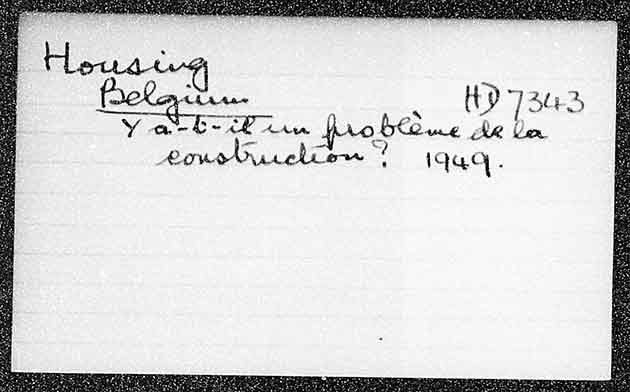 Housing
Belgium HD 7343
Y a-t-il un problème de la
construction? 1949.